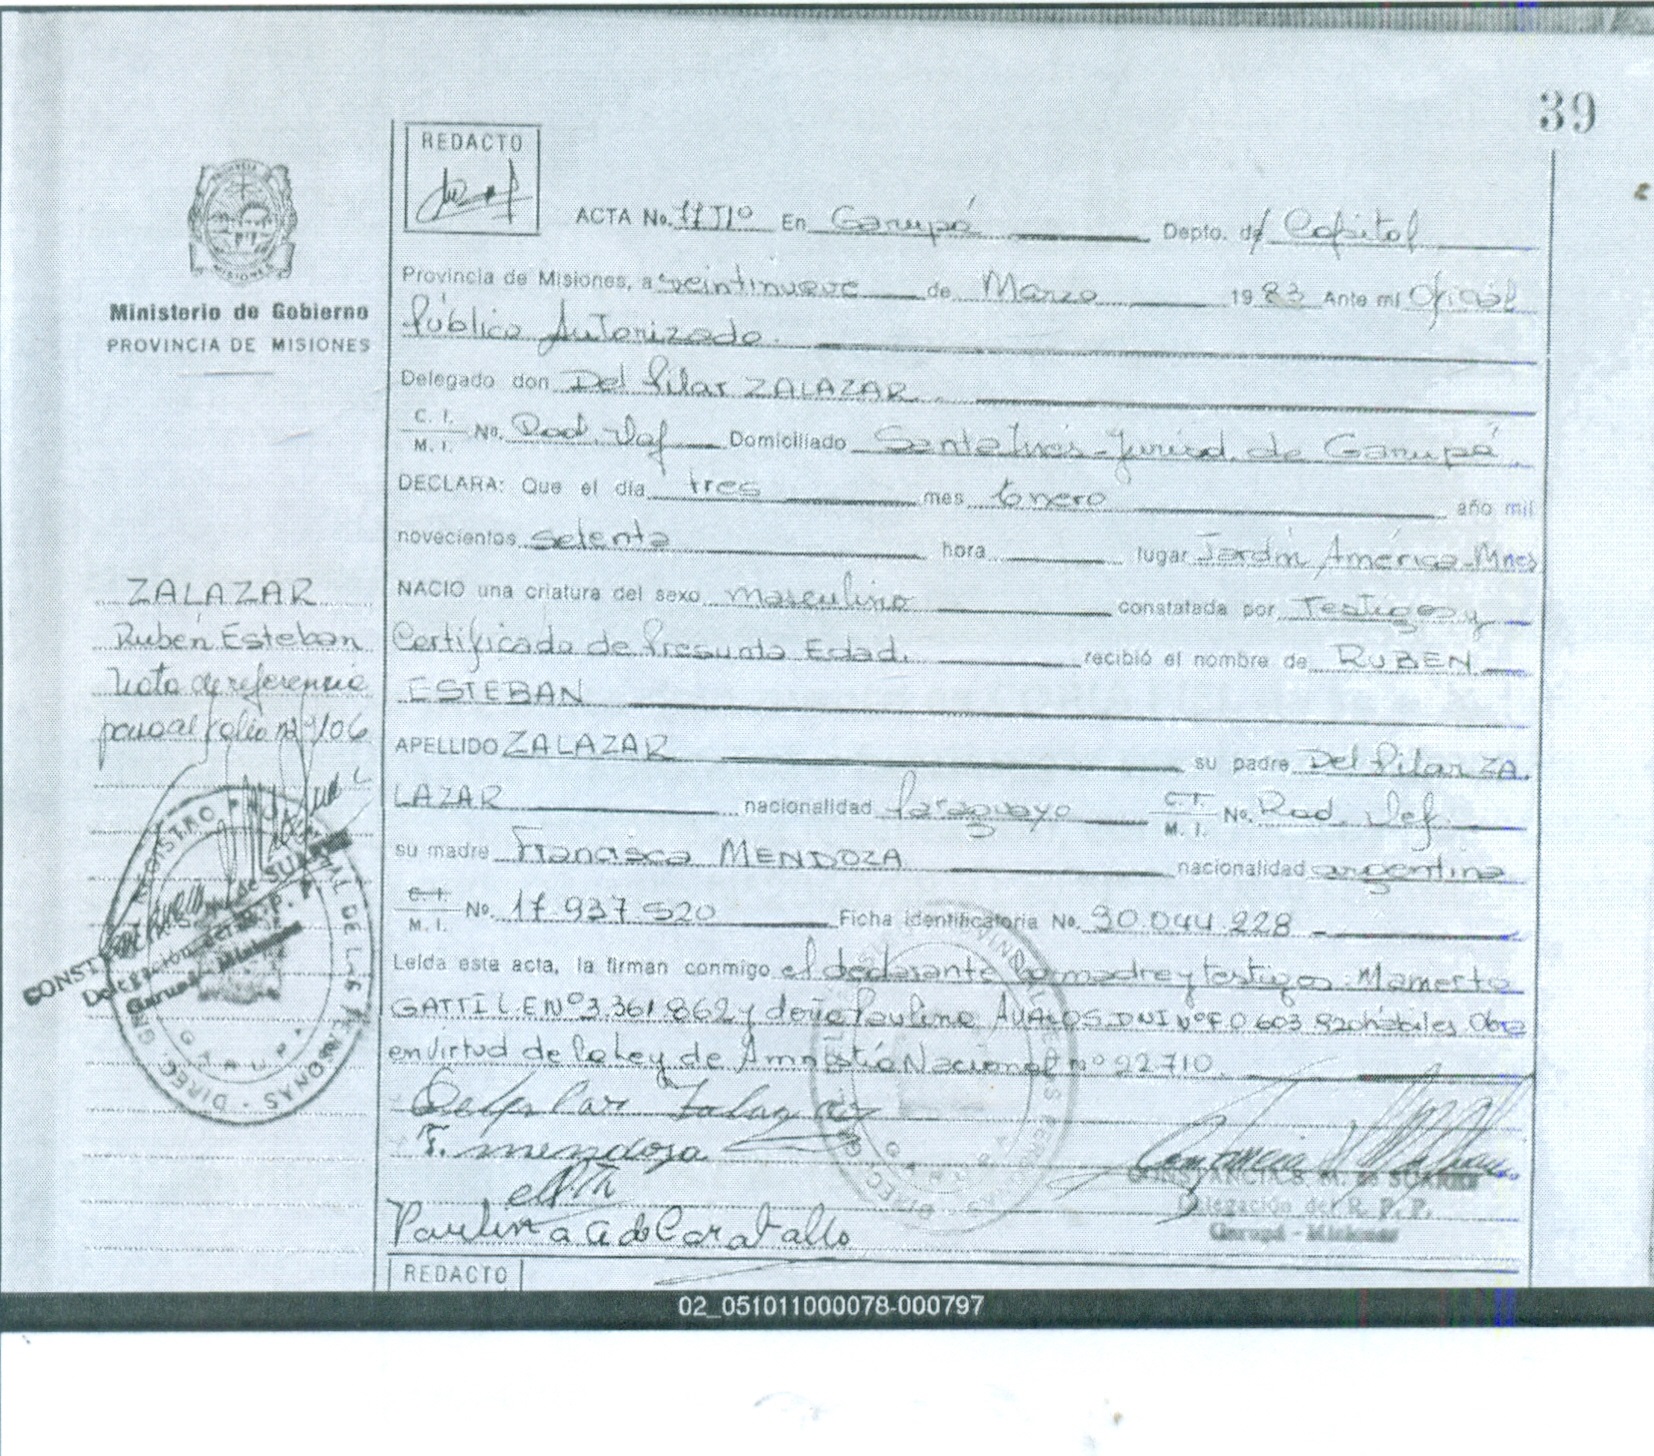 39
REDACTO
ACTA No. 77 Tº En Garupá Depto. d/ Capital
Ministerio de Gobierno
PROVINCIA DE MISIONES
Provincia de Misiones, a veintinueve de Marzo 1983 Ante mí Oficial
Público Autorizado.
Delegado don Del Pilar ZALAZAR.
C. I.
M. I. No. Rad. Def Domiciliado Santa Inés-Jurisd. de Garupá
DECLARA: Que el día tres mes Enero año mil
novecientos setenta hora lugar Jardín América-Mnes
NACIO una criatura del sexo masculino constatada por Testigos y
Certificado de Presunta Edad. recibió el nombre de RUBEN
ESTEBAN
APELLIDO ZALAZAR su padre Del Pilar ZA
LAZAR nacionalidad Paraguayo C. I.
M. I. No. Rad. Def.
su madre Francisca MENDOZA nacionalidad argentina
C. I.
M. I. No. 17.937.520 Ficha identificatoria No. 30.044.228
Leída esta acta, la firman conmigo el declarante la madre y testigos: Mamerto
GATTI L.E Nº 3.361.862 y doña Paulina AVALOS DNI Nº F.0.603.920 hábiles. Obra
en virtud de la Ley de Amnistía Nacional nº 22.710.
Delpilar Zalazar
F. mendoza
Paulina A de Caraballo
CONSTANCIA S. M. de SUAREZ
Delegación del R. P. P.
Garupá - Misiones
ZALAZAR
Rubén Esteban
Nota de referencia
pasa al folio nº 106
REDACTO
02_051011000078-000797